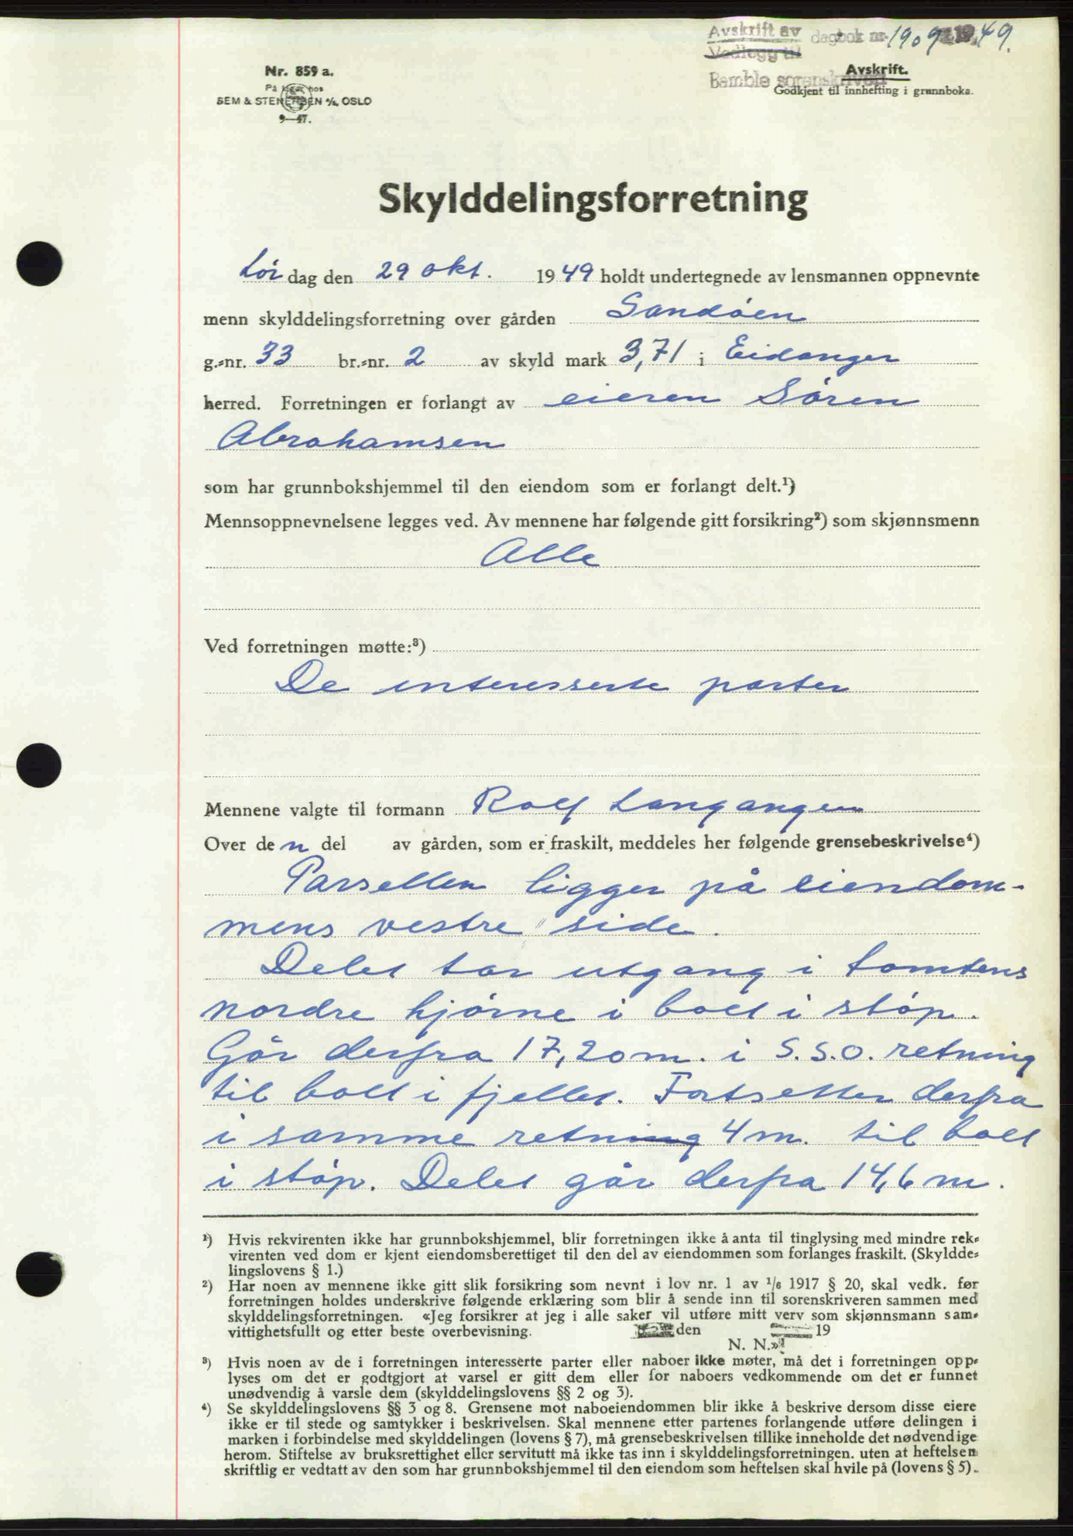 Avskrift av
Vedlegg til
dagbok nr. 1909 1949.
Bamble sorenskriveri
Avskrift.
Godkjent til innhefting i grunnboka.
Nr. 859 a.
På lager hos
SEM & STENERSEN A/S, OSLO
9—47.
Skylddelingsforretning
Lör dag den 29 okt. 1949 holdt undertegnede av lensmannen oppnevnte
menn skylddelingsforretning over gården Sandöen
g.-nr. 33 br.-nr. 2 av skyld mark 3,71 i Eidanger
herred. Forretningen er forlangt av eieren Sören
Abrahamsen
som har grunnbokshjemmel til den eiendom som er forlangt delt.¹)
Mennsoppnevnelsene legges ved. Av mennene har følgende gitt forsikring²) som skjønnsmenn
Alle
Ved forretningen møtte:³)
De interesserte parter
Mennene valgte til formann Rolf Langangen
Over de n del av gården, som er fraskilt, meddeles her følgende grensebeskrivelse⁴)
Parsellen ligger på eiendom-
mens vestre side.
Delet tar utgang i tomtens
nordre hjörne i bolt i stöp.
Går derfra 17,20 m. i S.S.O. retning
til bolt i fjellet. Fortsetter derfra
i samme retning 4 m. til bolt
i stöp. Delet går derfra 14,6 m.
¹) Hvis rekvirenten ikke har grunnbokshjemmel, blir forretningen ikke å anta til tinglysing med mindre rek-
virenten ved dom er kjent eiendomsberettiget til den del av eiendommen som forlanges fraskilt. (Skyldde-
lingslovens § 1.)
²) Har noen av mennene ikke gitt slik forsikring som nevnt i lov nr. 1 av 1/6 1917 § 20, skal vedk. før
forretningen holdes underskrive følgende erklæring som blir å sende inn til sorenskriveren sammen med
skylddelingsforretningen. «Jeg forsikrer at jeg i alle saker vil utføre mitt verv som skjønnsmann sam-
vittighetsfullt og etter beste overbevisning. den 19
N. N.»
³) Hvis noen av de i forretningen interesserte parter eller naboer ikke møter, må det i forretningen opp-
lyses om det er godtgjort at varsel er gitt dem eller for naboers vedkommende om det er funnet
unødvendig å varsle dem (skylddelingslovens §§ 2 og 3).
⁴) Se skylddelingslovens §§ 3 og 8. Grensene mot naboeiendommen blir ikke å beskrive dersom disse eiere
ikke er til stede og samtykker i beskrivelsen. Skal mennene etter partenes forlangende utføre delingen i
marken i forbindelse med skylddelingen (lovens § 7), må grensebeskrivelsen tillike inneholde det nødvendige
herom. Stiftelse av bruksrettighet eller servitutt må ikke tas inn i skylddelingsforretningen, uten at heftelsen
skriftlig er vedtatt av den som har grunnbokshjemmel til den eiendom som heftelsen skal hvile på (lovens § 5).